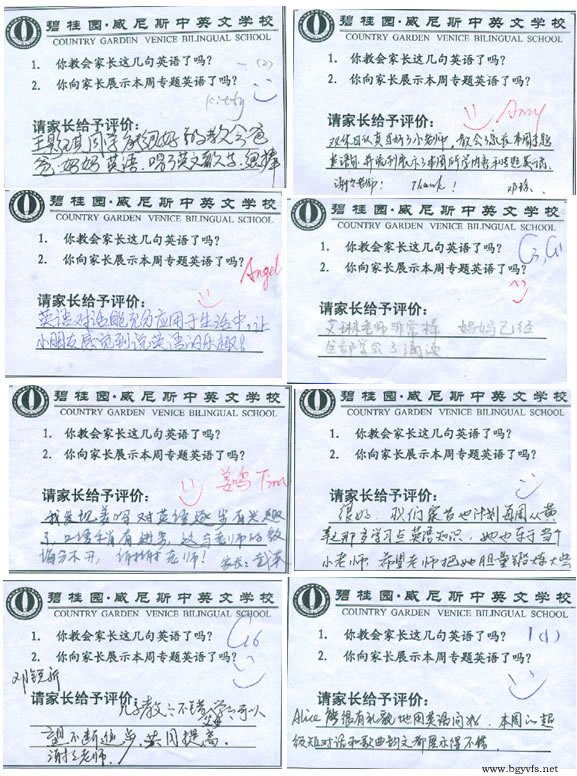 碧桂园·威尼斯中英文学校
COUNTRY GARDEN VENICE BILINGUAL SCHOOL
1. 你教会家长这几句英语了吗?
2. 你向家长展示本周专题英语了吗?
Kitty
请家长给予评价:
爸、妈妈英语
碧桂园·威尼斯中英文学校
COUNTRY GARDEN VENICE BILINGUAL SCHOOL
1. 你教会家长这几句英语了吗?
2. 你向家长展示本周专题英语了吗?
Amy
请家长给予评价:
谢谢老师! Thank!
碧桂园·威尼斯中英文学校
COUNTRY GARDEN VENICE BILINGUAL SCHOOL
1. 你教会家长这几句英语了吗?
2. 你向家长展示本周专题英语了吗?
Angel
请家长给予评价:
英语对话能充分应用于生活中,让
小朋友感觉到说英语的乐趣!
碧桂园·威尼斯中英文学校
COUNTRY GARDEN VENICE BILINGUAL SCHOOL
1. 你教会家长这几句英语了吗?
2. 你向家长展示本周专题英语了吗?
请家长给予评价:
老师非常棒 妈妈已经
全部学会了诵读
碧桂园·威尼斯中英文学校
COUNTRY GARDEN VENICE BILINGUAL SCHOOL
1. 你教会家长这几句英语了吗?
2. 你向家长展示本周专题英语了吗?
姜鸣 Tim
请家长给予评价:
我发现姜鸣对英语逐步有兴趣
了,口语稍有进步,这与老师的教
诲分不开,谢谢老师!
碧桂园·威尼斯中英文学校
COUNTRY GARDEN VENICE BILINGUAL SCHOOL
1. 你教会家长这几句英语了吗?
2. 你向家长展示本周专题英语了吗?
请家长给予评价:
很好,我们家长也计划每周从黄
那里学习点英语知识,她也乐于当个
小老师,希望老师把她胆量锻炼大些
碧桂园·威尼斯中英文学校
COUNTRY GARDEN VENICE BILINGUAL SCHOOL
1. 你教会家长这几句英语了吗?
2. 你向家长展示本周专题英语了吗?
G6
请家长给予评价:
望不断进步,共同提高.
谢谢老师.
碧桂园·威尼斯中英文学校
COUNTRY GARDEN VENICE BILINGUAL SCHOOL
1. 你教会家长这几句英语了吗?
2. 你向家长展示本周专题英语了吗?
请家长给予评价:
Alice能很有礼貌地用英语问好,本周的超
级短对话和歌曲韵文都展示得不错.
www.bgyvfs.net